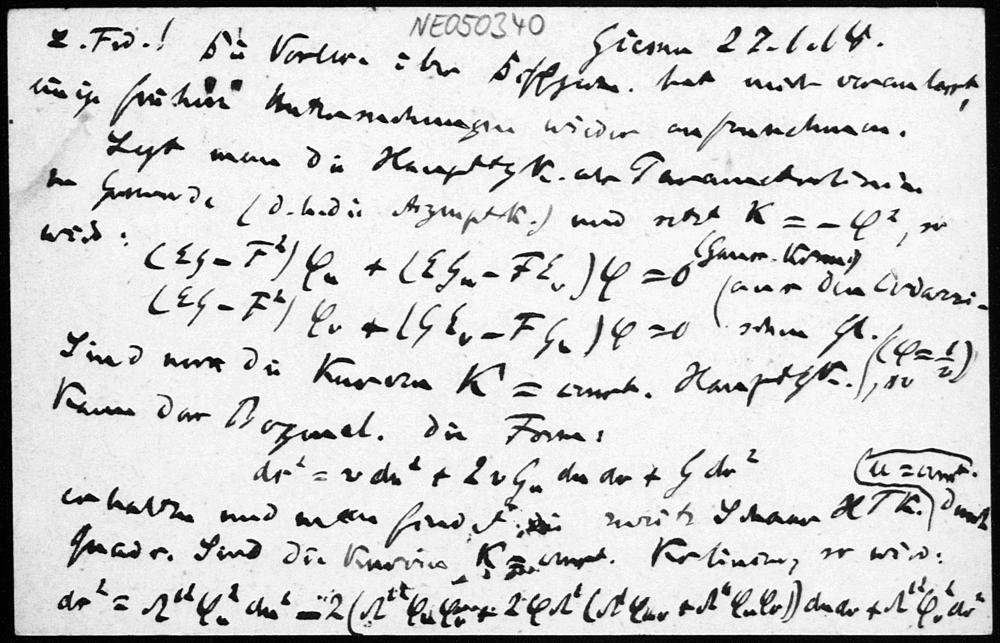 NE050340
L. Frd.! Die Vorles. über Diffgeom. hat mich veranlasst,
einige frühere Untersuchungen wieder aufzunehmen.
Legt man die Haupttgk. als Parameterlinien
zu Grunde (d. h. die Asymptk.) und setzt K = -φ², so
wird:
(EG - F²) φᵤ + (EGᵤ - FEᵥ) φ = 0 (Gauss-Kran)
(EG - F²) φᵥ + (GEᵥ - FGᵤ) φ = 0 (aus den Codazzi-
schen Gl.
Sind nun die Kurven K = const. Haupttgk. (φ = 1/v), so
kann das Bogenel. die Form:
ds² = v du² + 2v Gᵤ du dv + G dv² (u = const.
erhalten und man findet die zweite Schaar HTK.) durch
Quadr. Sind die Kurven K = const. Krlinien, so wird:
ds² = λ'² φᵤ² du² - 2 ( du dv + λ'² φᵥ² dv²